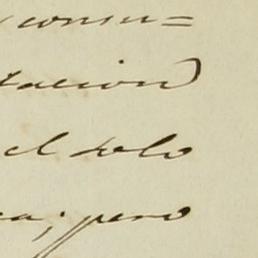 consu=
tacion
el solo
a; pero